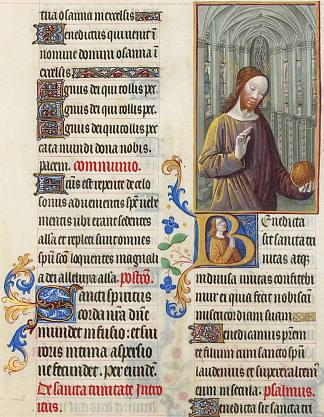 tua osanna in excelsis
Benedictus qui venit in
nomine domini osanna in
excelsis
Agnus dei qui tollis pec
Agnus dei qui tollis pec
Agnus dei qui tollis pec
cata mundi dona nobis
pacem. communio.
Factus est repente de celo
sonus advenientis spūs vehe
mentis ubi erant sedentes
alla et repleti sunt omnes
spū scō loquentes magnali
a dei alleluya alla. postcō.
Sancti spiritus
corda nr̄a dn̄e
mundet infusio: et su
roris intima aspersio
ne fecundet. per eiusde.
De sancta trinitate Intro
itus.
Benedicta
sit sancta tri
nitas atq
indivisa unitas confitebi
mur ei quia fecit nobiscum
misericordiam suam
Benedicamus prem
et filium cum sancto spū
laudemus et superexaltem
eum in secula. psalmus.
Benedicta sit sancta tri